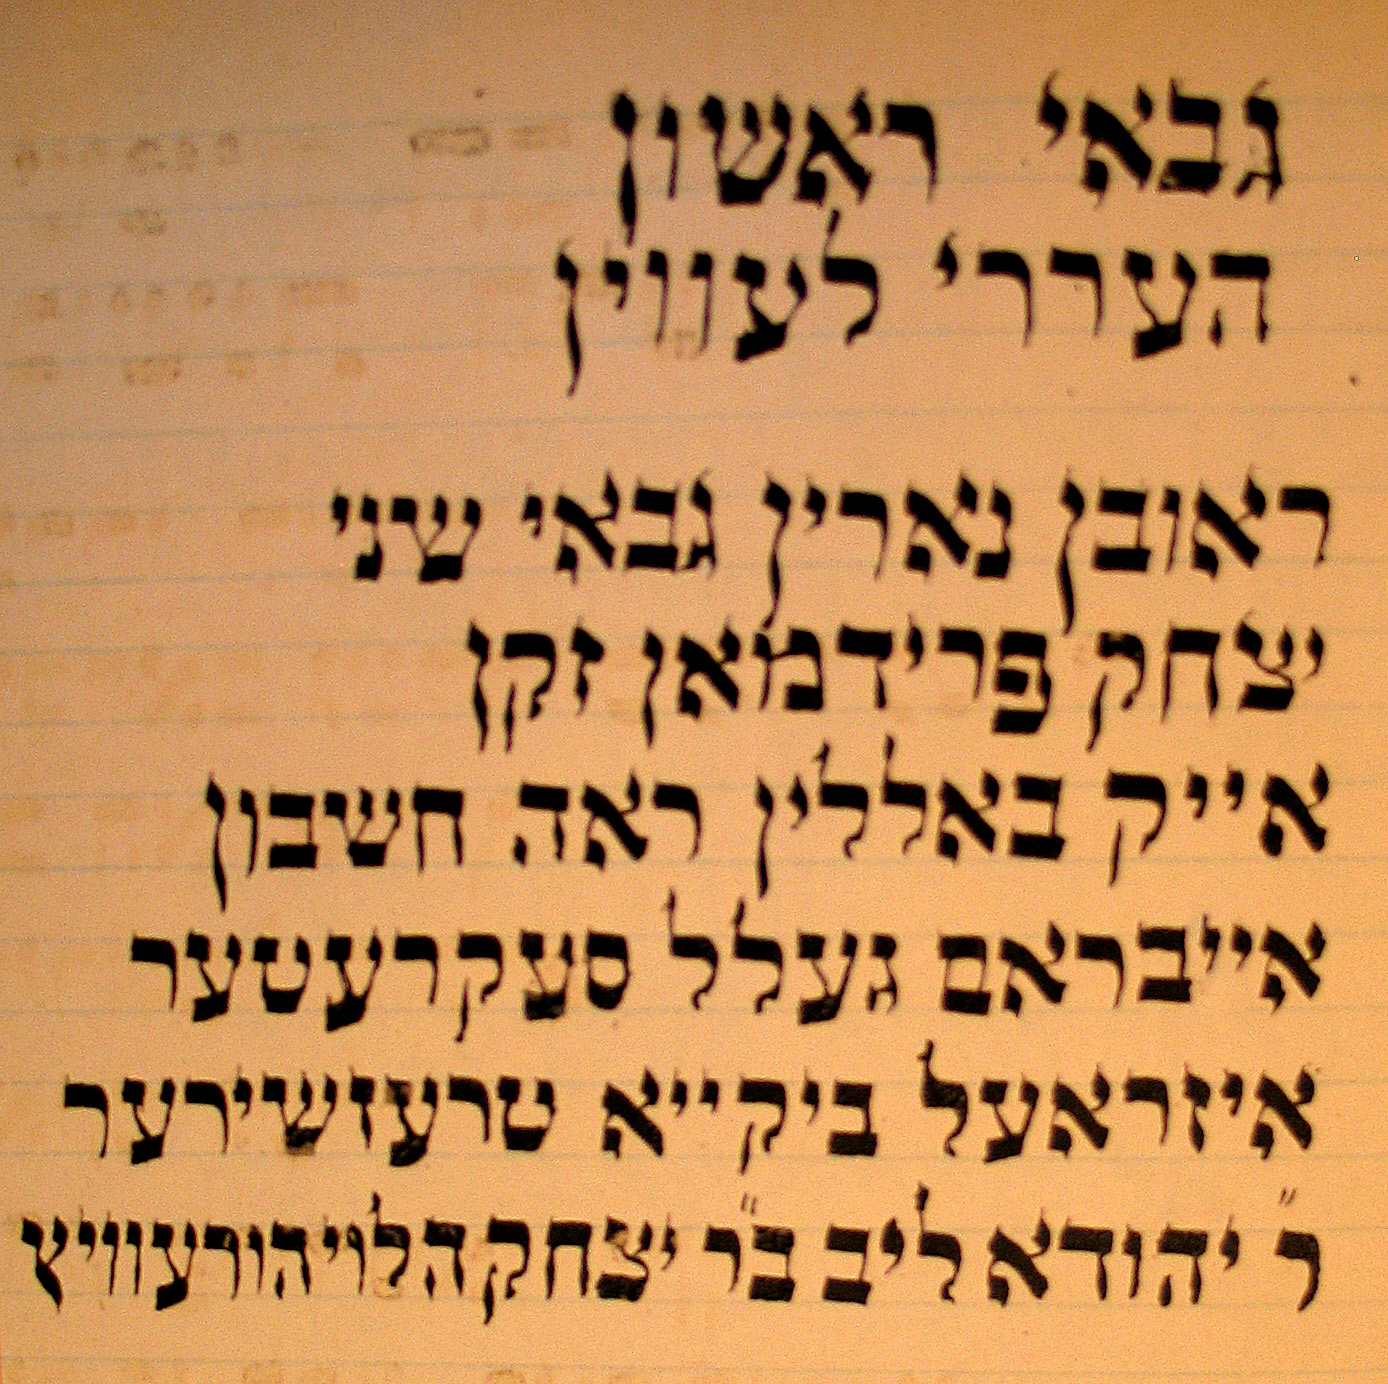 גבאי ראשון
העררי לעווין
ראובן נארין גבאי שני
יצחק פרידמאן זקן
אייק באללין ראה חשבון
אייבראם געלל סעקרעטער
איזראעל ביקייא טרעזשירער
ר״ יהודא ליב ב״ר יצחק הלוי הורעוויץ